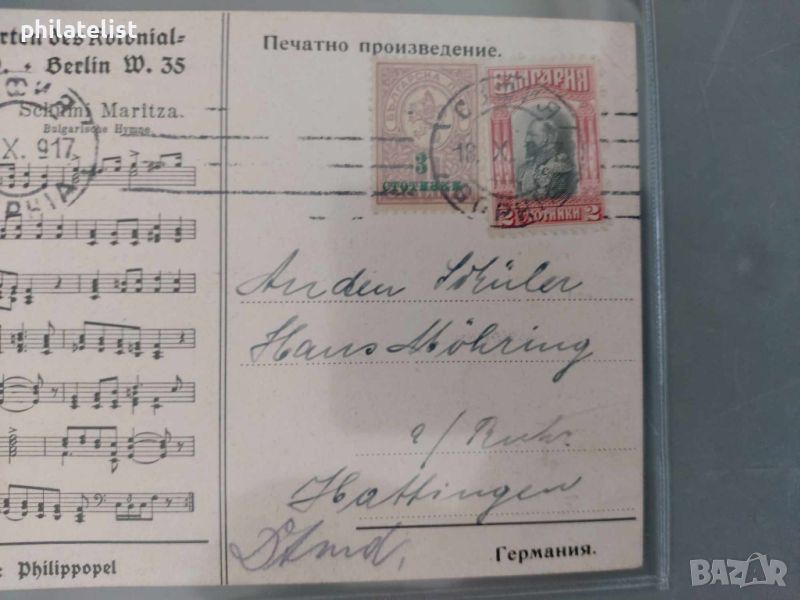 philatelist
rten des Kolonial=
Berlin W. 35
Schumi Maritza.
Bulgarische Hymne
X. 917
Печатно произведение.
БЪЛГАРСКА
3
СТОТИНКИ
БЪЛГАРИЯ
2 СТОТИНКИ 2
18. X
An den Schüler
Hans Möhring
a/ Ruhr.
Hattingen
Германия.
: Philippopel
BAZAR